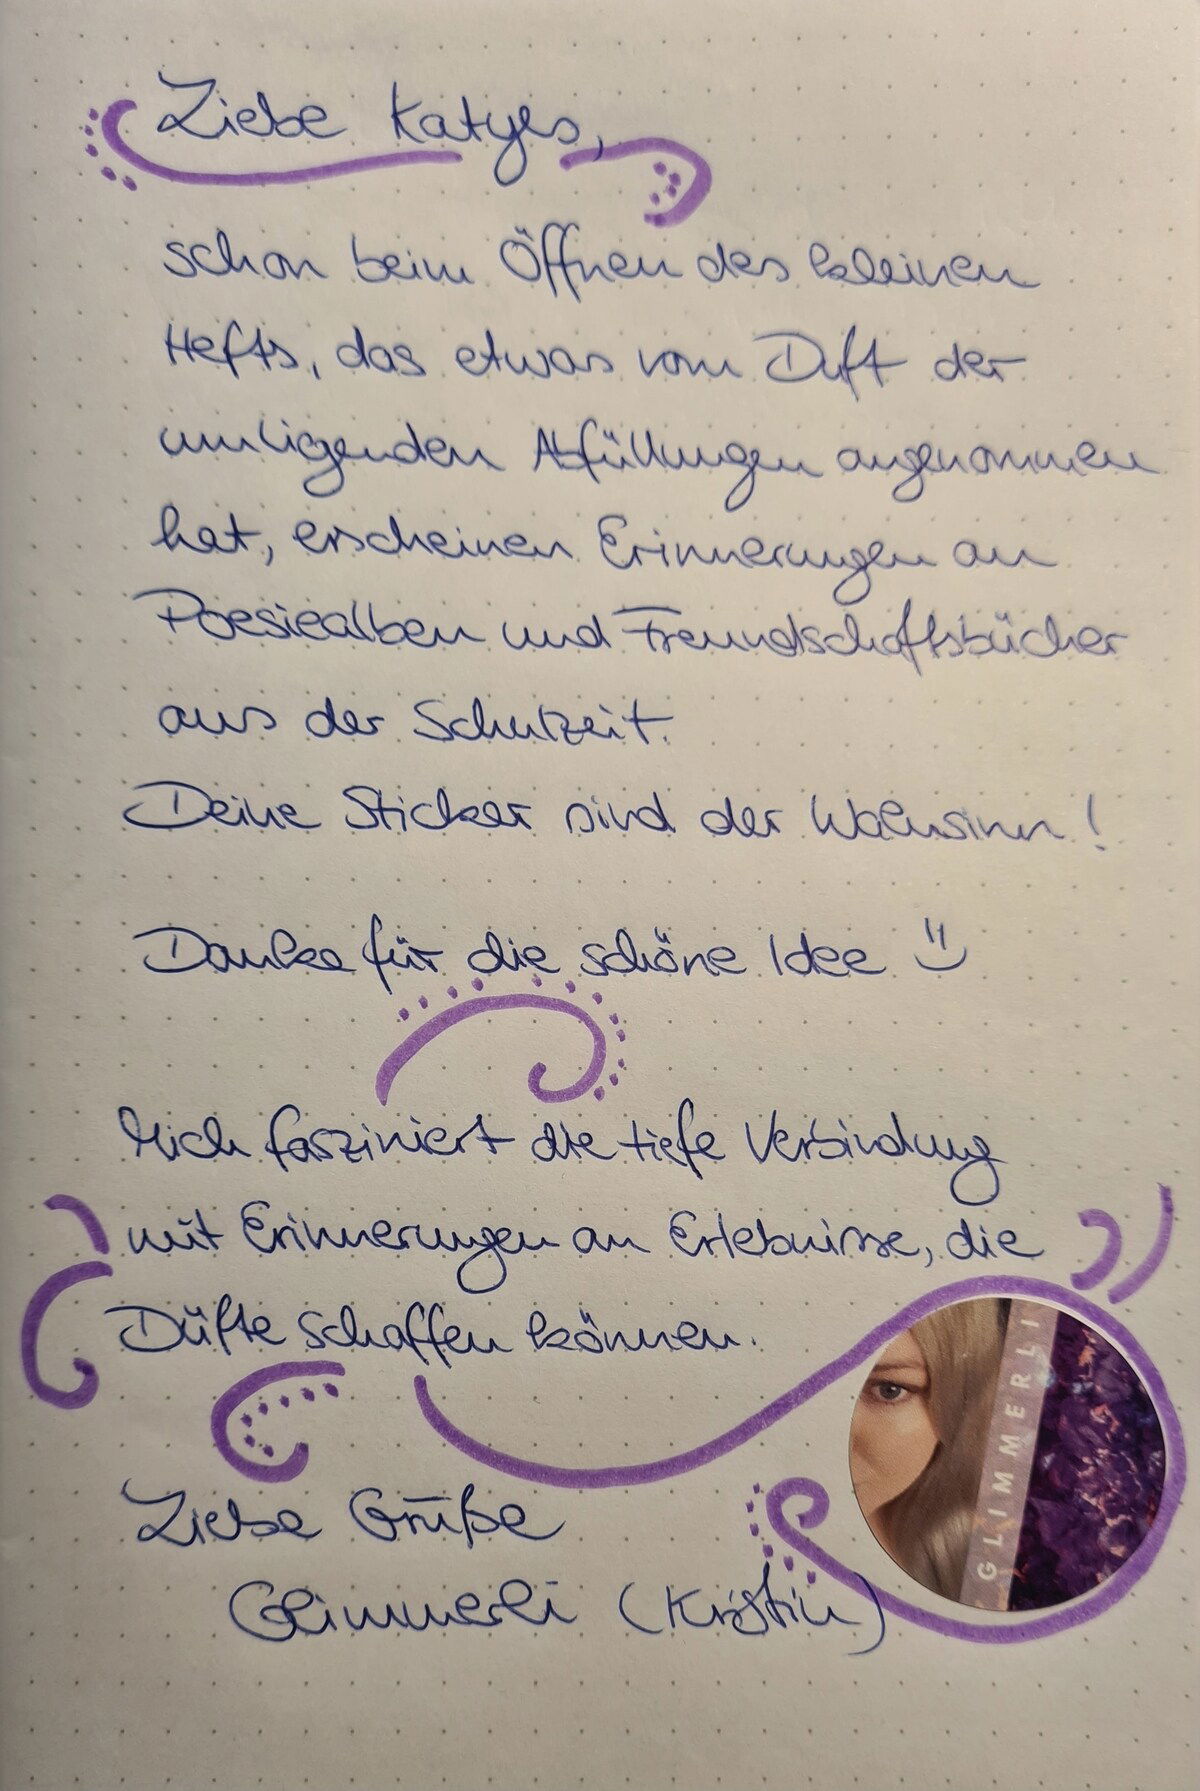 Liebe Katyes,
schon beim Öffnen des kleinen
Hefts, das etwas vom Duft der
umligenden Abfüllungen angenommen
hat, erscheinen Erinnerungen an
Poesiealben und Freundschaftsbücher
aus der Schulzeit.
Deine Sticker sind der Wahnsinn!
Danke für die schöne Idee
Mich fasziniert die tiefe Verbindung
mit Erinnerungen an Erlebnisse, die
Düfte schaffen können.
GLIMMERLI
Liebe Grüße
Glimmerli (Kristin)